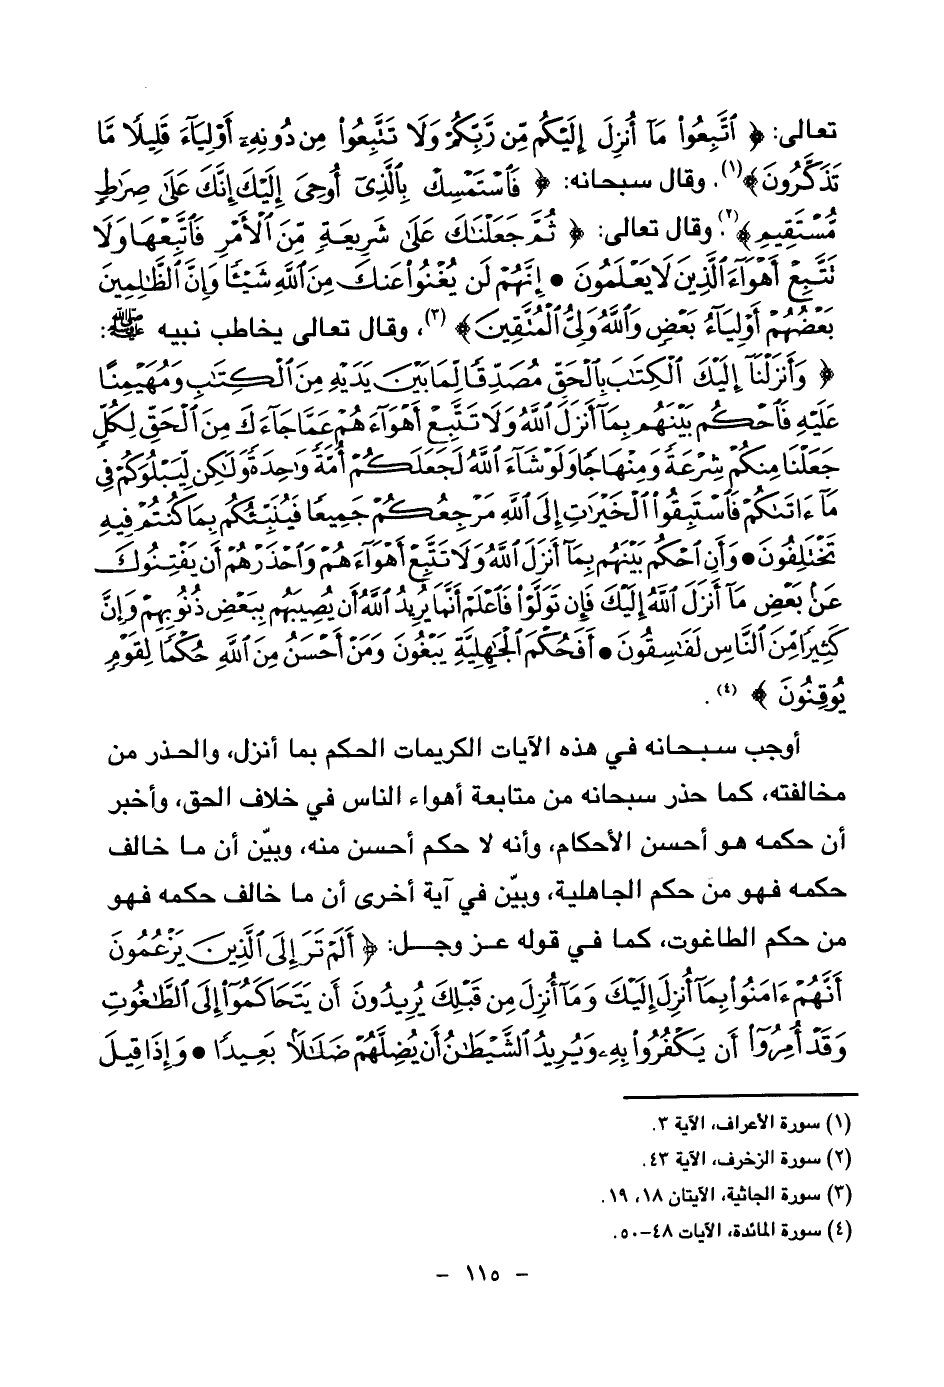 تعالى: ﴿ ٱتَّبِعُوا۟ مَآ أُنزِلَ إِلَيْكُم مِّن رَّبِّكُمْ وَلَا تَتَّبِعُوا۟ مِن دُونِهِۦٓ أَوْلِيَآءَ قَلِيلًا مَّا
تَذَكَّرُونَ﴾(١). وقال سبحانه: ﴿ فَٱسْتَمْسِكْ بِٱلَّذِىٓ أُوحِىَ إِلَيْكَ إِنَّكَ عَلَىٰ صِرَٰطٍ
مُّسْتَقِيمٍ﴾(٢). وقال تعالى: ﴿ ثُمَّ جَعَلْنَٰكَ عَلَىٰ شَرِيعَةٍ مِّنَ ٱلْأَمْرِ فَٱتَّبِعْهَا وَلَا
تَتَّبِعْ أَهْوَآءَ ٱلَّذِينَ لَا يَعْلَمُونَ ● إِنَّهُمْ لَن يُغْنُوا۟ عَنكَ مِنَ ٱللَّهِ شَيْـًٔا وَإِنَّ ٱلظَّٰلِمِينَ
بَعْضُهُمْ أَوْلِيَآءُ بَعْضٍ وَٱللَّهُ وَلِىُّ ٱلْمُتَّقِينَ﴾(٣)، وقال تعالى يخاطب نبيه ﷺ:
﴿ وَأَنزَلْنَآ إِلَيْكَ ٱلْكِتَٰبَ بِٱلْحَقِّ مُصَدِّقًا لِّمَا بَيْنَ يَدَيْهِ مِنَ ٱلْكِتَٰبِ وَمُهَيْمِنًا
عَلَيْهِ فَٱحْكُم بَيْنَهُم بِمَآ أَنزَلَ ٱللَّهُ وَلَا تَتَّبِعْ أَهْوَآءَهُمْ عَمَّا جَآءَكَ مِنَ ٱلْحَقِّ لِكُلٍّ
جَعَلْنَا مِنكُمْ شِرْعَةً وَمِنْهَاجًا وَلَوْ شَآءَ ٱللَّهُ لَجَعَلَكُمْ أُمَّةً وَٰحِدَةً وَلَٰكِن لِّيَبْلُوَكُمْ فِى
مَآ ءَاتَىٰكُمْ فَٱسْتَبِقُوا۟ ٱلْخَيْرَٰتِ إِلَى ٱللَّهِ مَرْجِعُكُمْ جَمِيعًا فَيُنَبِّئُكُم بِمَا كُنتُمْ فِيهِ
تَخْتَلِفُونَ ● وَأَنِ ٱحْكُم بَيْنَهُم بِمَآ أَنزَلَ ٱللَّهُ وَلَا تَتَّبِعْ أَهْوَآءَهُمْ وَٱحْذَرْهُمْ أَن يَفْتِنُوكَ
عَنۢ بَعْضِ مَآ أَنزَلَ ٱللَّهُ إِلَيْكَ فَإِن تَوَلَّوْا۟ فَٱعْلَمْ أَنَّمَا يُرِيدُ ٱللَّهُ أَن يُصِيبَهُم بِبَعْضِ ذُنُوبِهِمْ وَإِنَّ
كَثِيرًا مِّنَ ٱلنَّاسِ لَفَٰسِقُونَ ● أَفَحُكْمَ ٱلْجَٰهِلِيَّةِ يَبْغُونَ وَمَنْ أَحْسَنُ مِنَ ٱللَّهِ حُكْمًا لِّقَوْمٍ
يُوقِنُونَ ﴾ (٤).
أوجب سبحانه في هذه الآيات الكريمات الحكم بما أنزل، والحذر من
مخالفته، كما حذر سبحانه من متابعة أهواء الناس في خلاف الحق، وأخبر
أن حكمه هو أحسن الأحكام، وأنه لا حكم أحسن منه، وبيّن أن ما خالف
حكمه فهو من حكم الجاهلية، وبيّن في آية أخرى أن ما خالف حكمه فهو
من حكم الطاغوت، كما في قوله عز وجل: ﴿ أَلَمْ تَرَ إِلَى ٱلَّذِينَ يَزْعُمُونَ
أَنَّهُمْ ءَامَنُوا۟ بِمَآ أُنزِلَ إِلَيْكَ وَمَآ أُنزِلَ مِن قَبْلِكَ يُرِيدُونَ أَن يَتَحَاكَمُوٓا۟ إِلَى ٱلطَّٰغُوتِ
وَقَدْ أُمِرُوٓا۟ أَن يَكْفُرُوا۟ بِهِۦ وَيُرِيدُ ٱلشَّيْطَٰنُ أَن يُضِلَّهُمْ ضَلَٰلًۢا بَعِيدًا ● وَإِذَا قِيلَ
(١) سورة الأعراف، الآية ٣.
(٢) سورة الزخرف، الآية ٤٣.
(٣) سورة الجاثية، الآيتان ١٨، ١٩.
(٤) سورة المائدة، الآيات ٤٨-٥٠.
- ١١٥ -